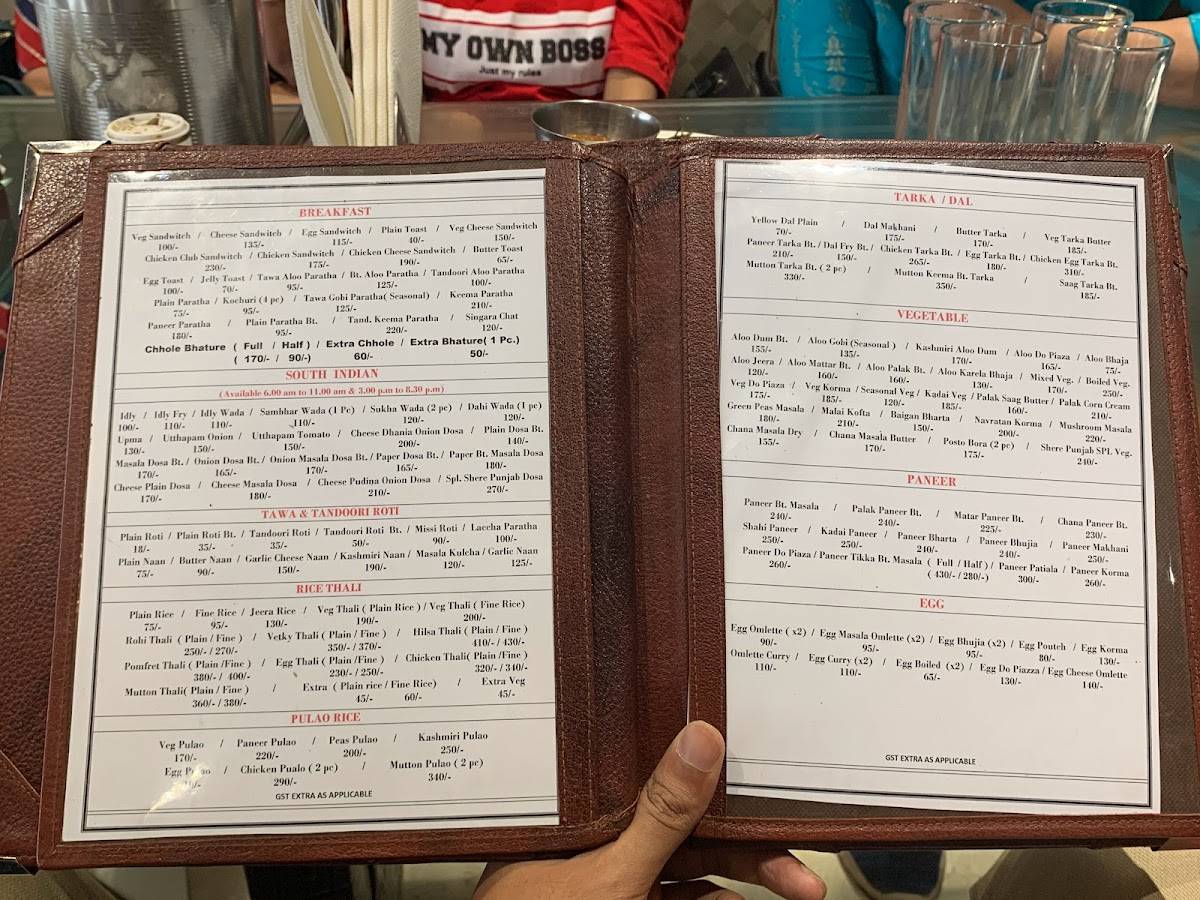 MY OWN BOSS
Just my rules
BREAKFAST
Veg Sandwitch / Cheese Sandwitch / Egg Sandwitch / Plain Toast / Veg Cheese Sandwitch
100/- 135/- 115/- 40/- 150/-
Chicken Club Sandwitch / Chicken Sandwitch / Chicken Cheese Sandwitch / Butter Toast
230/- 175/- 190/- 65/-
Egg Toast / Jelly Toast / Tawa Aloo Paratha / Bt. Aloo Paratha / Tandoori Aloo Paratha
100/- 70/- 95/- 125/- 100/-
Plain Paratha / Kochuri (4 pc) / Tawa Gobi Paratha( Seasonal) / Keema Paratha
75/- 95/- 125/- 210/-
Paneer Paratha / Plain Paratha Bt. / Tand. Keema Paratha / Singara Chat
180/- 95/- 220/- 120/-
Chhole Bhature ( Full / Half ) / Extra Chhole / Extra Bhature( 1 Pc.)
( 170/- / 90/-) 60/- 50/-
SOUTH INDIAN
(Available 6.00 am to 11.00 am & 3.00 p.m to 8.30 p.m)
Idly / Idly Fry / Idly Wada / Sambhar Wada (1 Pc) / Sukha Wada (2 pc) / Dahi Wada (1 pc)
100/- 110/- 110/- 110/- 120/- 120/-
Upma / Utthapam Onion / Utthapam Tomato / Cheese Dhania Onion Dosa / Plain Dosa Bt.
130/- 150/- 150/- 200/- 140/-
Masala Dosa Bt. / Onion Dosa Bt. / Onion Masala Dosa Bt. / Paper Dosa Bt. / Paper Bt. Masala Dosa
170/- 165/- 170/- 165/- 180/-
Cheese Plain Dosa / Cheese Masala Dosa / Cheese Pudina Onion Dosa / Spl. Shere Punjab Dosa
170/- 180/- 210/- 270/-
TAWA & TANDOORI ROTI
Plain Roti / Plain Roti Bt. / Tandoori Roti / Tandoori Roti Bt. / Missi Roti / Laccha Paratha
18/- 35/- 35/- 50/- 90/- 100/-
Plain Naan / Butter Naan / Garlic Cheese Naan / Kashmiri Naan / Masala Kulcha / Garlic Naan
75/- 90/- 150/- 190/- 120/- 125/-
RICE THALI
Plain Rice / Fine Rice / Jeera Rice / Veg Thali ( Plain Rice ) / Veg Thali ( Fine Rice)
75/- 95/- 130/- 190/- 200/-
Rohi Thali ( Plain / Fine ) / Vetky Thali ( Plain / Fine ) / Hilsa Thali ( Plain / Fine )
250/- / 270/- 350/- / 370/- 410/- / 430/-
Pomfret Thali ( Plain /Fine ) / Egg Thali ( Plain /Fine ) / Chicken Thali( Plain /Fine )
380/- / 400/- 230/- / 250/- 320/- / 340/-
Mutton Thali( Plain / Fine ) / Extra ( Plain rice / Fine Rice) / Extra Veg
360/- / 380/- 45/- 60/- 45/-
PULAO RICE
Veg Pulao / Paneer Pulao / Peas Pulao / Kashmiri Pulao
170/- 220/- 200/- 250/-
Egg Pulao / Chicken Pualo ( 2 pc) / Mutton Pulao ( 2 pc)
290/- 340/-
GST EXTRA AS APPLICABLE
TARKA / DAL
Yellow Dal Plain / Dal Makhani / Butter Tarka / Veg Tarka Butter
70/- 175/- 170/- 185/-
Paneer Tarka Bt. / Dal Fry Bt. / Chicken Tarka Bt. / Egg Tarka Bt. / Chicken Egg Tarka Bt.
210/- 150/- 265/- 180/- 310/-
Mutton Tarka Bt. ( 2 pc) / Mutton Keema Bt. Tarka / Saag Tarka Bt.
330/- 350/- 185/-
VEGETABLE
Aloo Dum Bt. / Aloo Gobi (Seasonal ) / Kashmiri Aloo Dum / Aloo Do Piaza / Aloo Bhaja
155/- 135/- 170/- 165/- 75/-
Aloo Jeera / Aloo Mattar Bt. / Aloo Palak Bt. / Aloo Karela Bhaja / Mixed Veg. / Boiled Veg.
120/- 160/- 160/- 130/- 170/- 250/-
Veg Do Piaza / Veg Korma / Seasonal Veg / Kadai Veg / Palak Saag Butter / Palak Corn Cream
175/- 185/- 120/- 185/- 160/- 210/-
Green Peas Masala / Malai Kofta / Baigan Bharta / Navratan Korma / Mushroom Masala
180/- 210/- 150/- 200/- 220/-
Chana Masala Dry / Chana Masala Butter / Posto Bora (2 pc) / Shere Punjab SPL Veg.
155/- 170/- 175/- 240/-
PANEER
Paneer Bt. Masala / Palak Paneer Bt. / Matar Paneer Bt. / Chana Paneer Bt.
240/- 240/- 225/- 230/-
Shahi Paneer / Kadai Paneer / Paneer Bharta / Paneer Bhujia / Paneer Makhani
250/- 250/- 240/- 240/- 250/-
Paneer Do Piaza / Paneer Tikka Bt. Masala ( Full / Half ) / Paneer Patiala / Paneer Korma
260/- ( 430/- / 280/-) 300/- 260/-
EGG
Egg Omlette ( x2) / Egg Masala Omlette (x2) / Egg Bhujia (x2) / Egg Poutch / Egg Korma
90/- 95/- 95/- 80/- 130/-
Omlette Curry / Egg Curry (x2) / Egg Boiled (x2) / Egg Do Piazza / Egg Cheese Omlette
110/- 110/- 65/- 130/- 140/-
GST EXTRA AS APPLICABLE